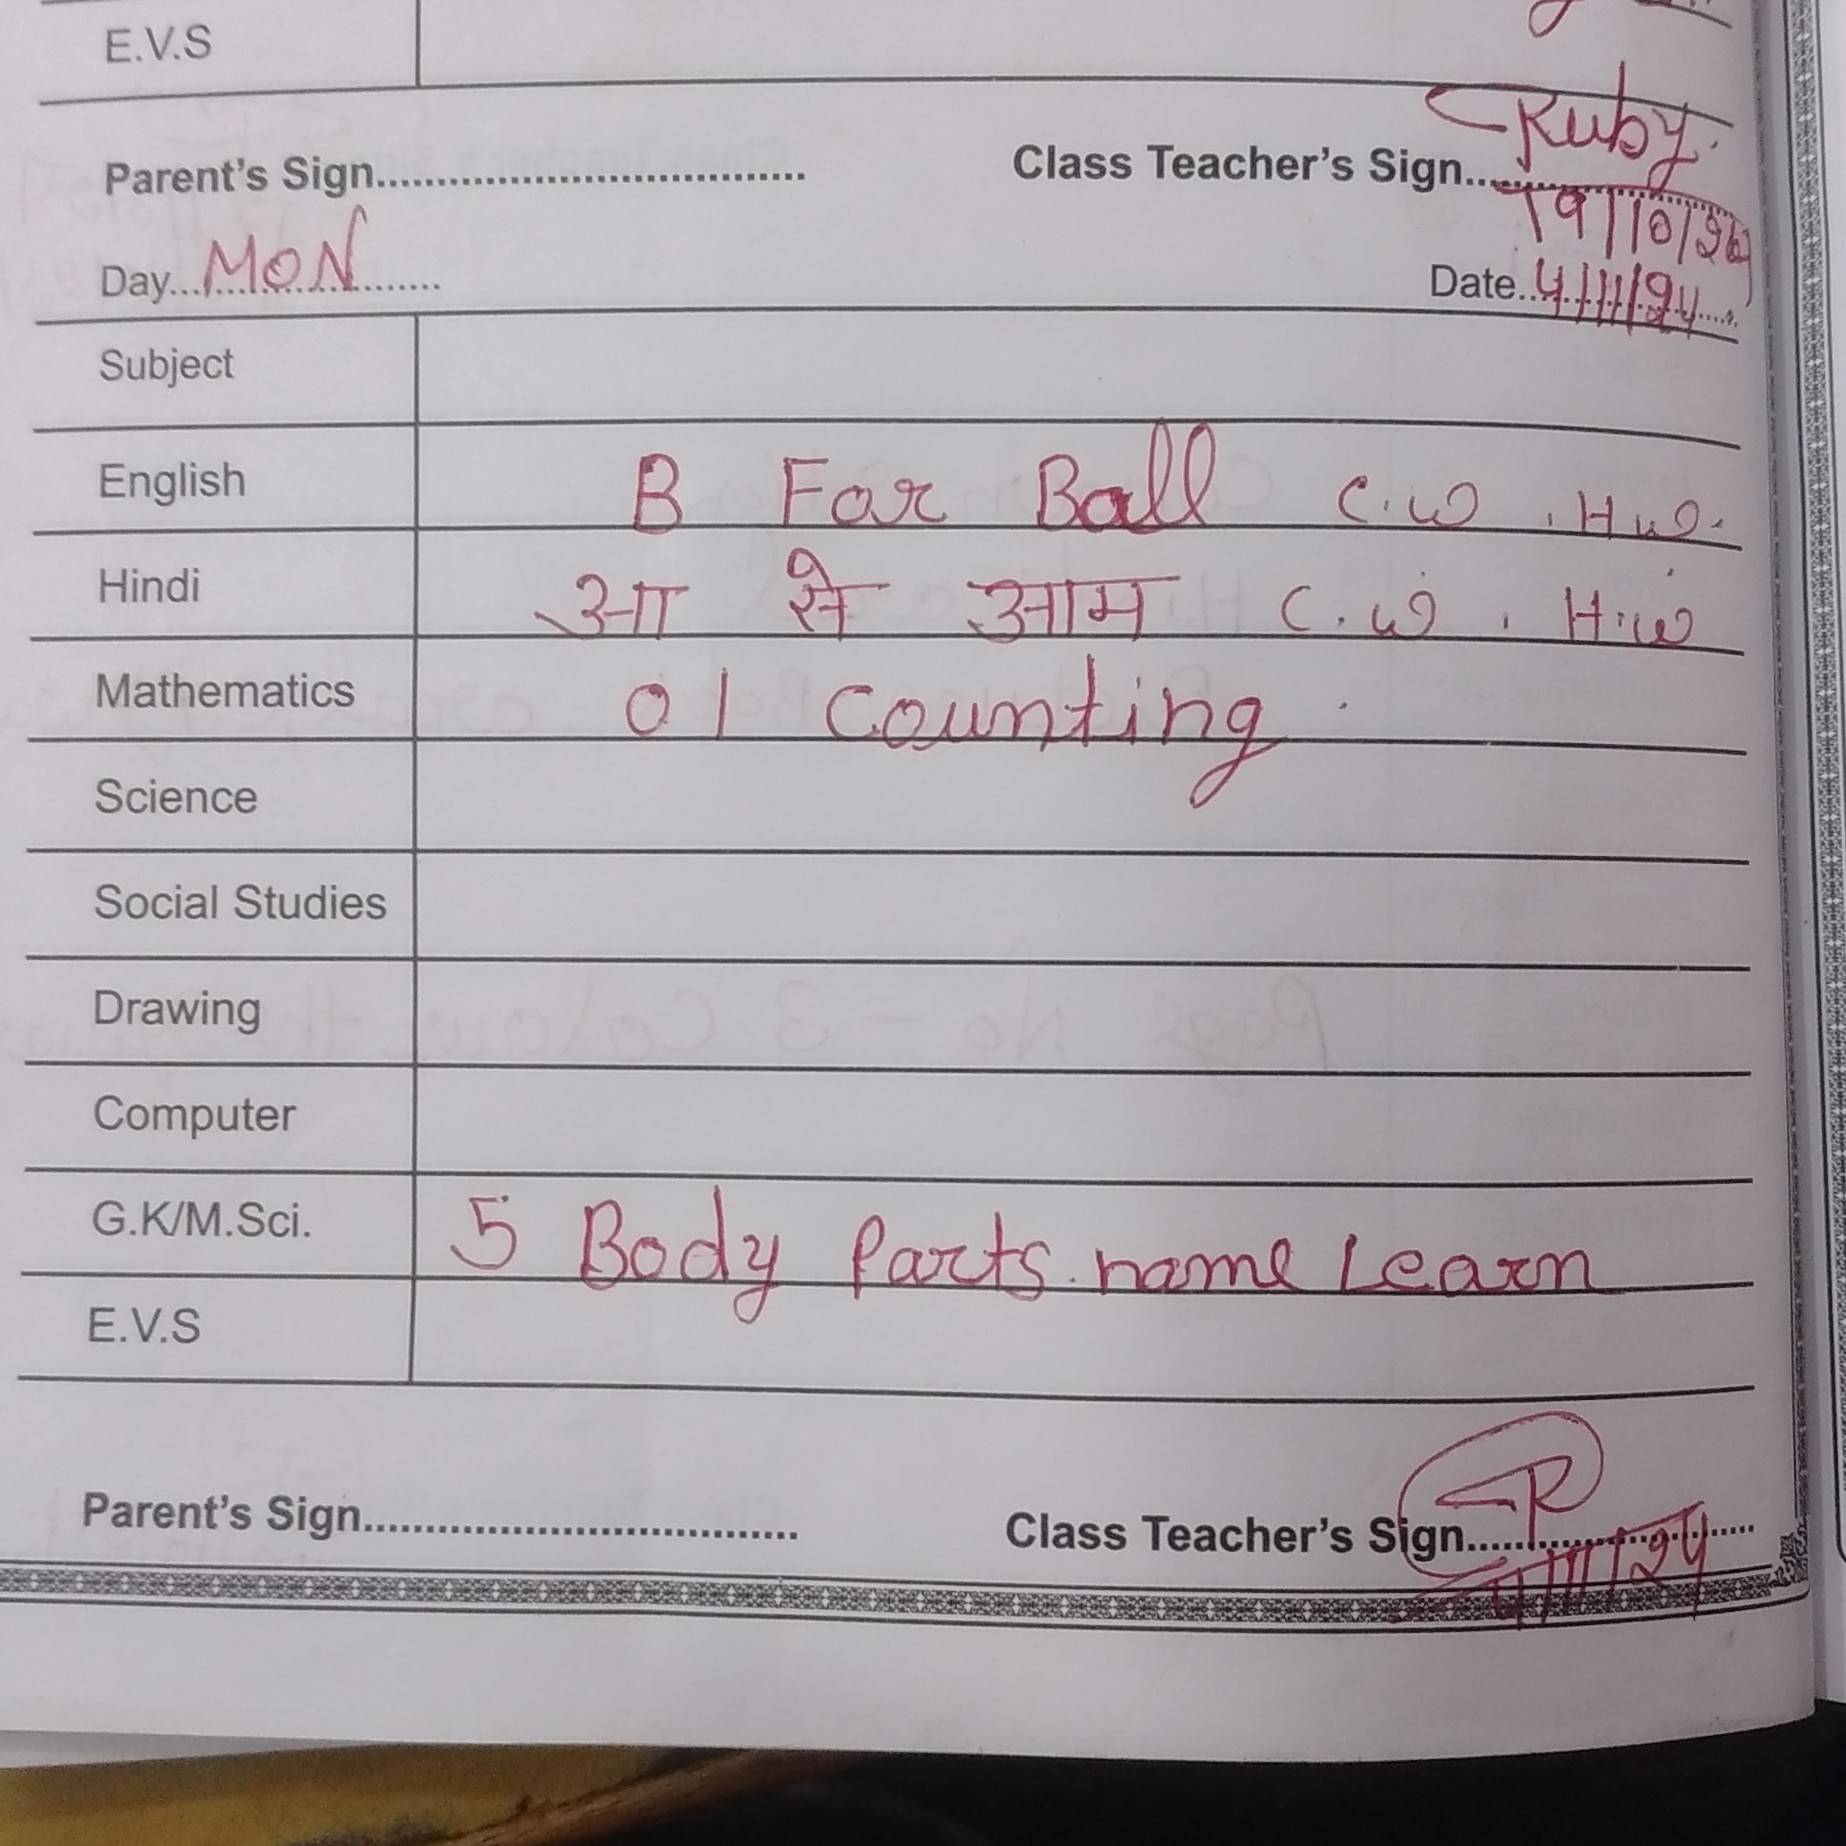 E.V.S
Parent's Sign.................................... Class Teacher's Sign.......Ruby.
19/10/24
Day...MON....... Date..4/11/24....
Subject
English B For Ball C.W , H.W.
Hindi आ से आम C.W , H.W
Mathematics 01 Counting
Science
Social Studies
Drawing
Computer
G.K/M.Sci. 5 Body Parts name Learn
E.V.S
Parent's Sign.................................... Class Teacher's Sign.......R
4/11/24